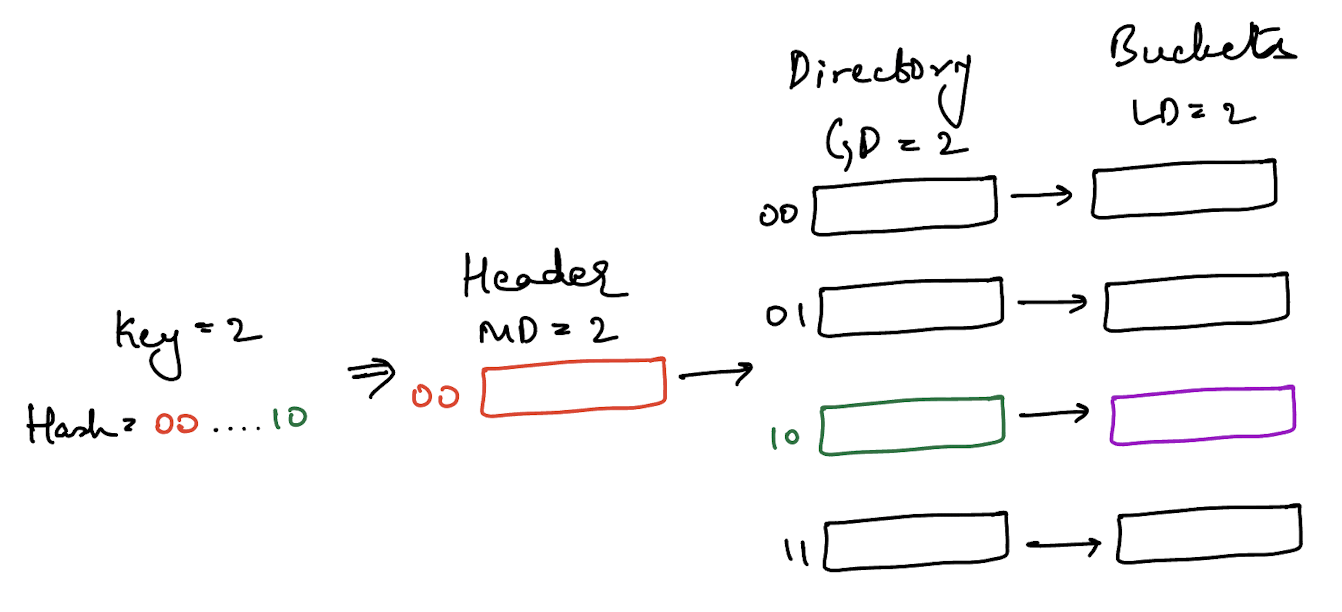 Key = 2
Hash = 00 .... 10
Header
MD = 2
00
Directory
GD = 2
00
01
10
11
Buckets
LD = 2